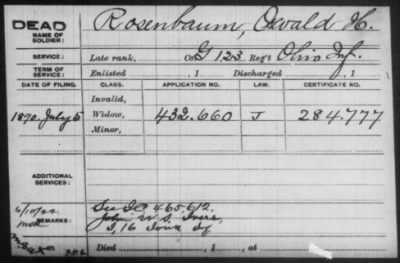 DEAD
NAME OF SOLDIER:
Rosenbaum, Oswald H.
SERVICE:
Late rank, Co G 123 Reg't Ohio Inf.
TERM OF SERVICE
Enlisted , 1 Discharged , 1
DATE OF FILING. CLASS. APPLICATION NO. LAW. CERTIFICATE NO.
Invalid,
1890. July 5 Widow, 432.660 J 284.777
Minor,
ADDITIONAL SERVICES:
See 465612
REMARKS: John W. S.
I, 16 Iowa Inf
Died , 1 , at